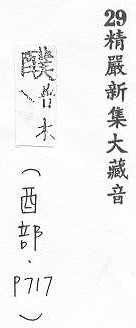 29精嚴新集大藏音
醭普木
(酉部.P717)